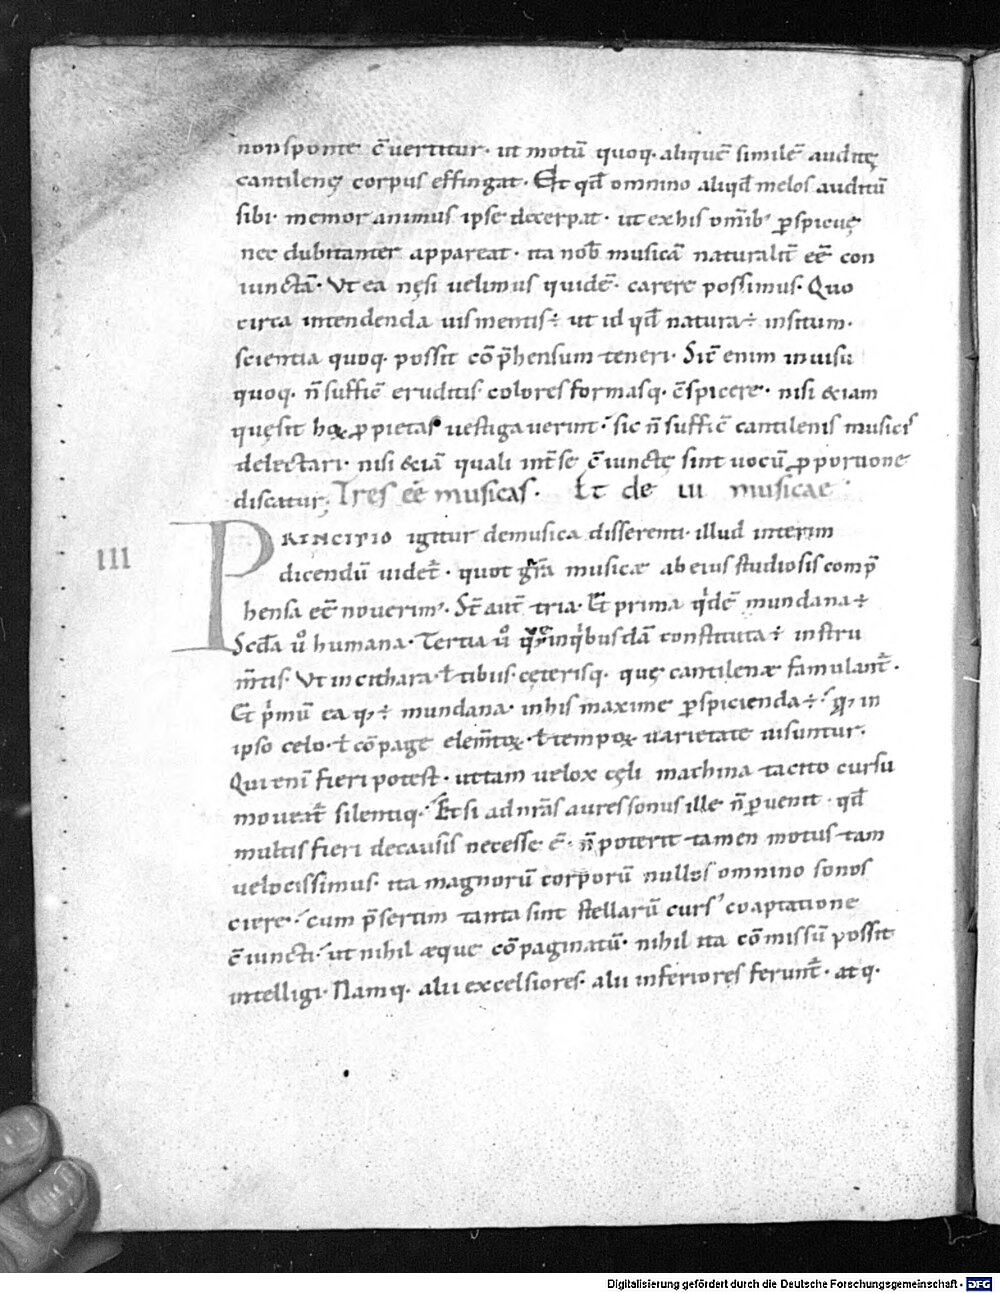 non sponte c̄vertitur· ut motū quoq· aliquē similē auditę
cantilenę corpus effingat· Et qđ omnino aliqđ melos auditū
sibi· memor animus ipse decerpat· ut ex his om̄ib' ꝑspicuę
nec dubitanter appareat· ita nob̄ musicā naturalit̄ eē con
iunctā· Vt ea nęsi uelimus quidē· carere possimus· Quo
circa intendenda uis mentis ÷ ut id qđ natura ÷ insitum·
scientia quoq· possit cōp̄hensum teneri· Sic̄ enim in uisu
quoq· n̄ suffic̄ eruditis colores formasq· c̄spicere· nisi &iam
quęsit hoꝝ ꝓpietas uestigauerint· sic n̄ suffic̄ cantilenis musicis
delectari· nisi &iā quali int̄ se c̄iunctę sint uocū ꝓportione
discatur; Tres eē musicas· Et de ui musicae·
III
PRINCIPIO igitur de musica disserenti· illud interim
dicendū uidet̄· quot gn̄a musicæ ab eius studiosis comp̄
hensa eē nouerim'· St̄ aut̄ tria· Et prima qͥdē mundana ÷
Scđa ů humana· Tertia ů in qͥbusdā constituta ÷ instru
m̄tis· Vt in cithara· ł tibus· cęterisq· quę cantilenæ famulant̄·
Et pͥmū ea q, ÷ mundana· in his maxime ꝑspicienda ÷ q, in
ipso celo· ł cōpage elem̄toꝝ· ł tempoꝝ uarietate uisuntur·
Qui eni fieri potest· ut tam uelox cęli machina tacito cursu
moueat̄ silentiq· Et si ad nr̄as aures sonus ille n̄ ꝑuenit· qđ
multis fieri de causis necesse ē· n̄ poterit tamen motus tam
uelocissimus· ita magnorū corporū nullos omnino sonos
ciere· cum p̄sertim tanta sint stellarū curs' coaptatione
c̄iuncti· ut nihil æque cōpaginatū· nihil ita cōmissū possit
intelligi· Namq· alii excelsiores· alii inferiores ferunt̄· atq·
Digitalisierung gefördert durch die Deutsche Forschungsgemeinschaft - DFG